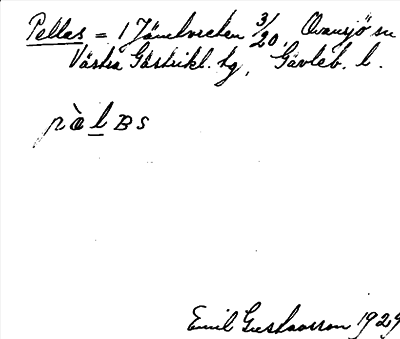 Pellas = 1 Jämtvreten 3/20. Ovansjö sn
Västra Gästrikl. hg, Gävleb. l.
pàlBs
Emil Gustavsson 1929